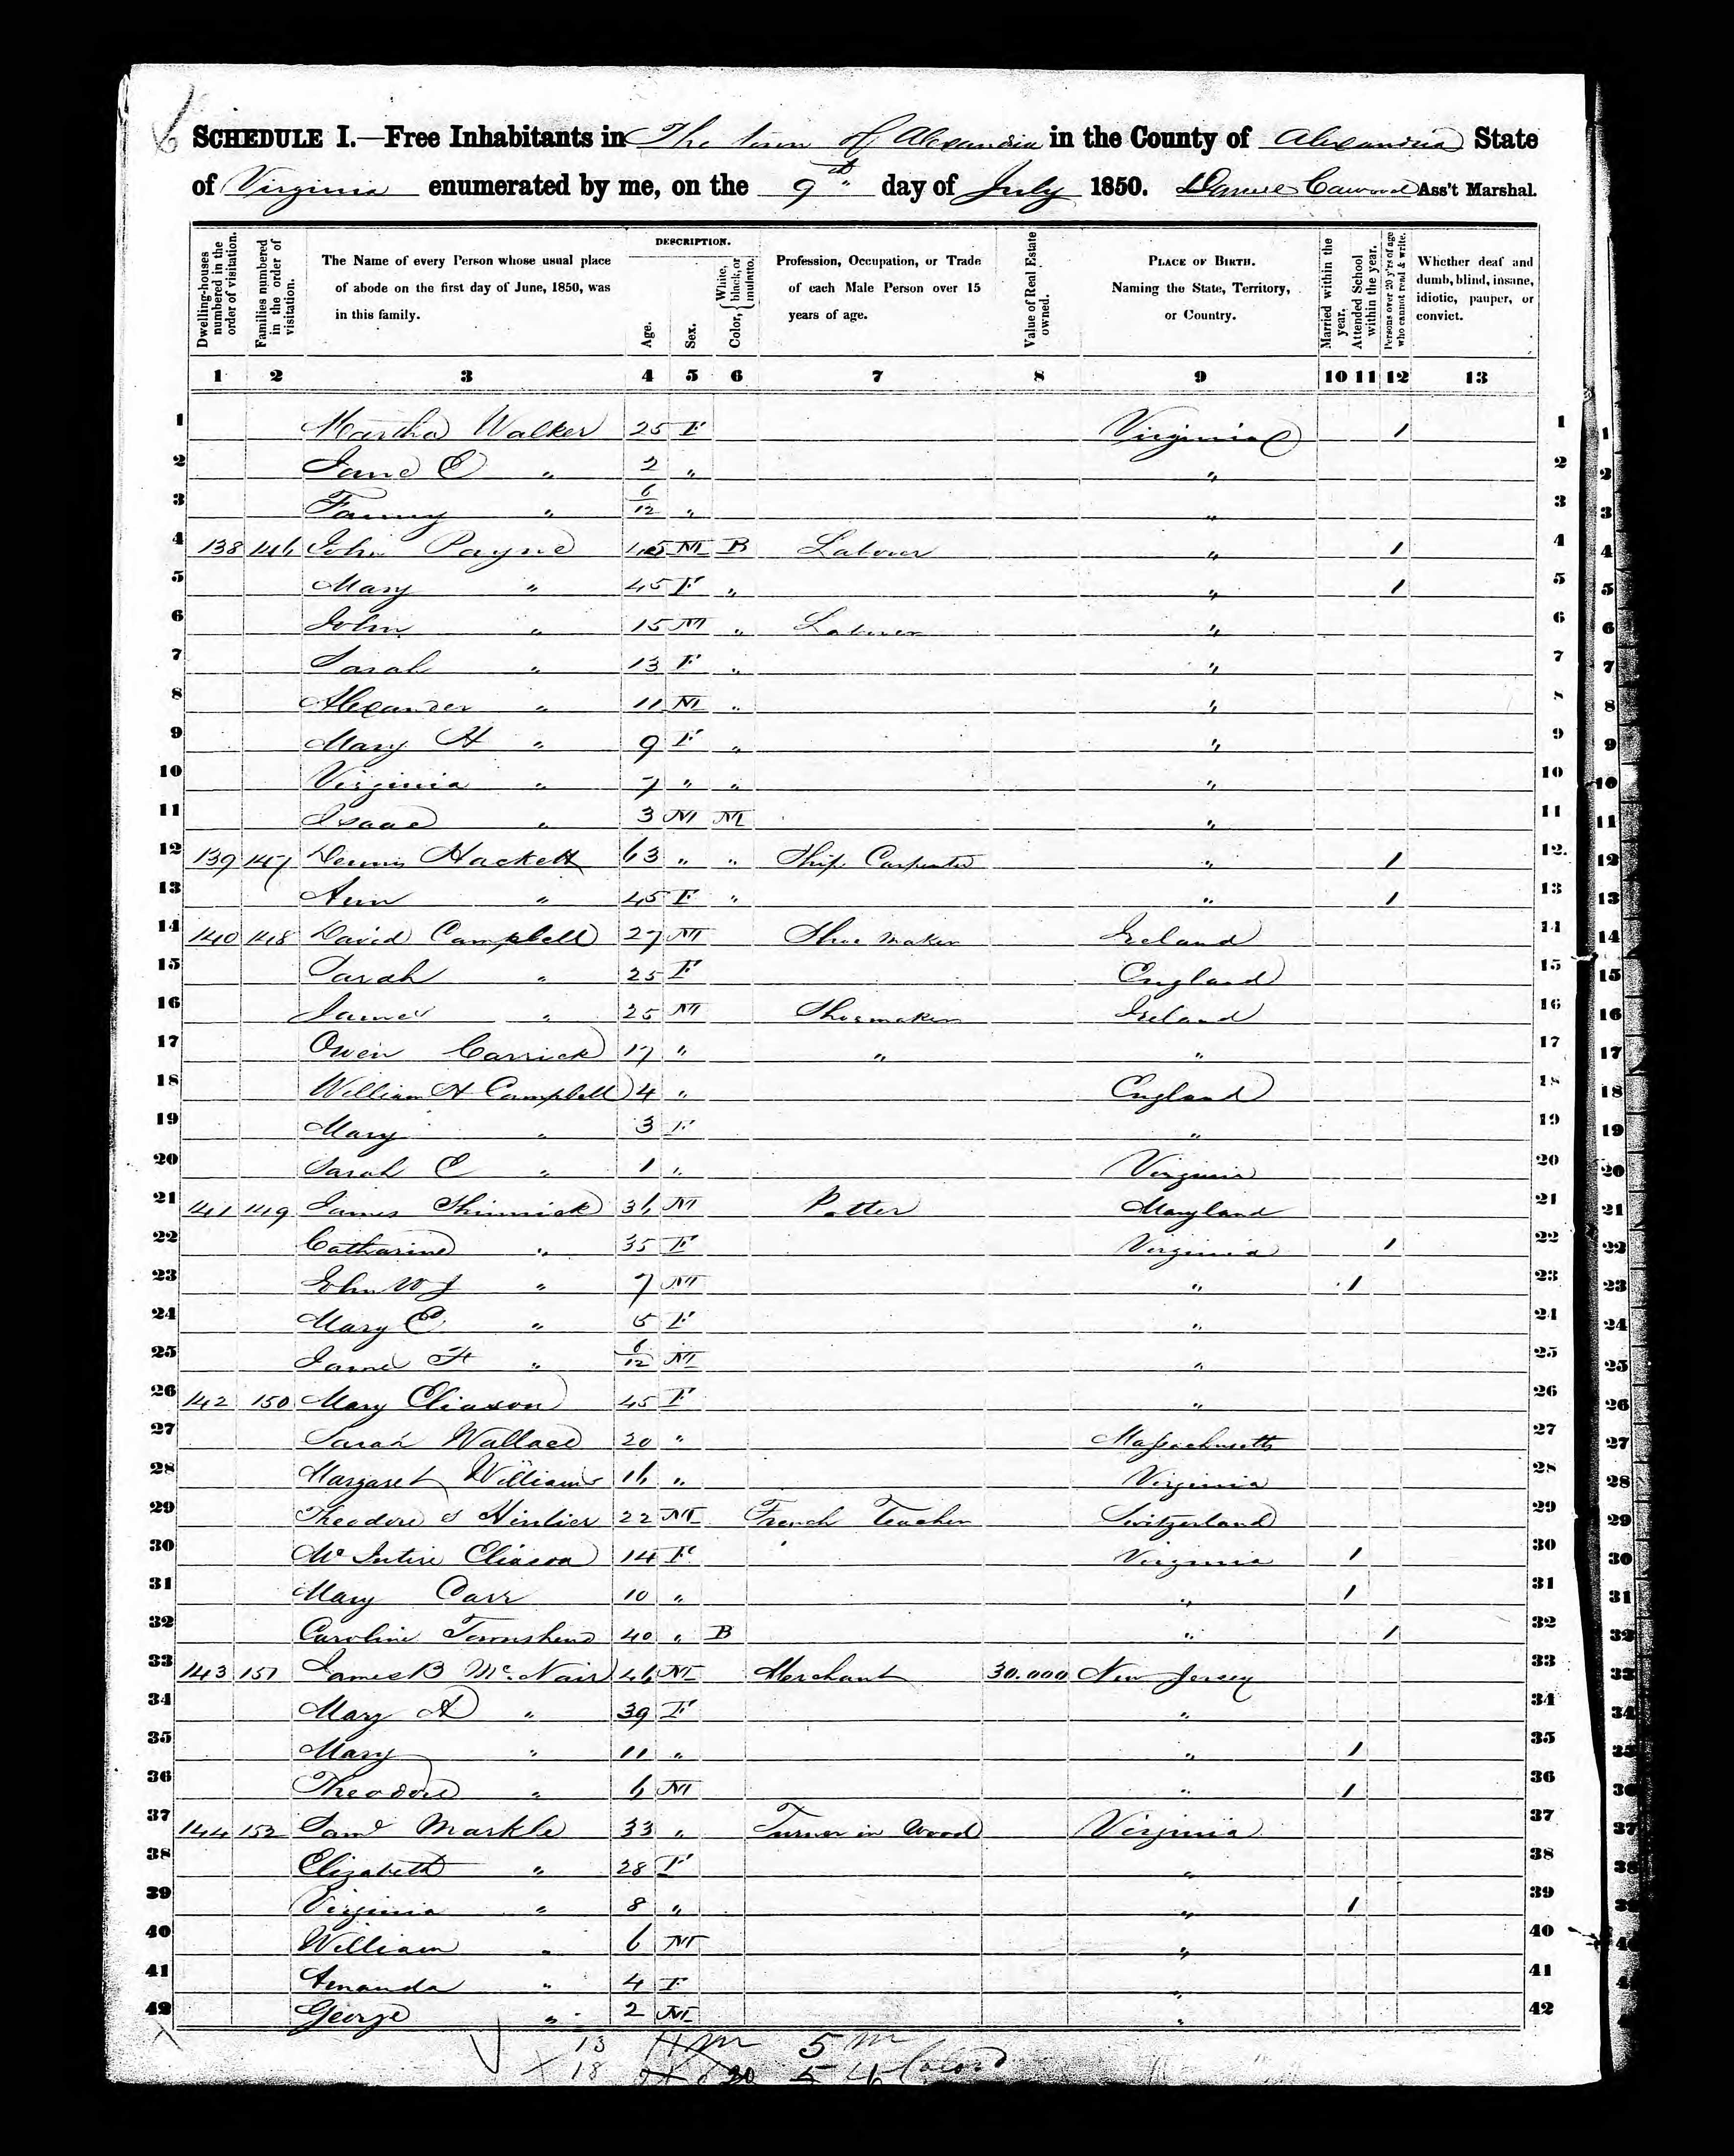 SCHEDULE I.—Free Inhabitants in The town of Alexandria in the County of Alexandria State
of Virginia enumerated by me, on the 9th day of July 1850. Ass't Marshal.
Dwelling-houses numbered in the order of visitation.
Families numbered in the order of visitation.
The Name of every Person whose usual place of abode on the first day of June, 1850, was in this family.
DESCRIPTION.
Age.
Sex.
Color, { White, black, or mulatto.
Profession, Occupation, or Trade of each Male Person over 15 years of age.
Value of Real Estate owned.
PLACE OF BIRTH. Naming the State, Territory, or Country.
Married within the year.
Attended School within the year.
Persons over 20 y'rs of age who cannot read & write.
Whether deaf and dumb, blind, insane, idiotic, pauper, or convict.
1 2 3 4 5 6 7 8 9 10 11 12 13
1 Martha Walker 25 F Virginia 1 1
2 Jane E " 2 " " 2
3 Fanny " 6/12 " " 3
4 138 146 John Payne 45 M B Labourer " 1 4
5 Mary " 45 F " " 1 5
6 John " 15 M " Labourer " 6
7 Sarah " 13 F " " 7
8 Alexander " 11 M " " 8
9 Mary H " 9 F " " 9
10 Virginia " 7 " " " 10
11 Isaac " 3 M M " 11
12 139 147 Dennis Hackett 63 " " Ship Carpenter " 1 12.
13 Ann " 45 F " " 1 13
14 140 148 David Campbell 27 M Shoe Maker Ireland 14
15 Sarah " 25 F England 15
16 James " 25 M Shoemaker Ireland 16
17 Owen Carrick 17 " " " 17
18 William H Campbell 4 " England 18
19 Mary " 3 F " 19
20 Sarah E " 1 " Virginia 20
21 141 149 James Shinnick 36 M Potter Maryland 21
22 Catharine " 35 F Virginia 1 22
23 John W J " 7 M " 1 23
24 Mary E " 5 F " 24
25 James F " 6/12 M " 25
26 142 150 Mary Eliason 45 F " 26
27 Sarah Wallace 20 " Massachusetts 27
28 Margaret Williams 16 " Virginia 28
29 Theodore 22 M French Teacher Switzerland 29
30 Mc Intire Eliason 14 F Virginia 1 30
31 Mary Carr 10 " " 1 31
32 Caroline Townshend 40 " B " 1 32
33 143 151 James B McNair 46 M Merchant 30.000 New Jersey 33
34 Mary A " 39 F " 34
35 Mary " 11 " " 1 35
36 Theodore " 6 M " 1 36
37 144 152 Saml Markle 33 " Turner in Wood Virginia 37
38 Elizabeth " 28 F " 38
39 Virginia " 8 " " 1 39
40 William " 6 M " 40
41 Amanda " 4 F " 41
42 George " 2 M " 42
13 5 m
18 20 5 4 Colord